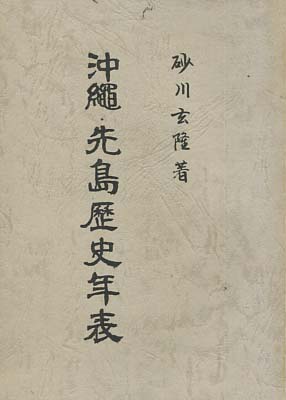 砂川玄隆著
沖繩・先島歷史年表